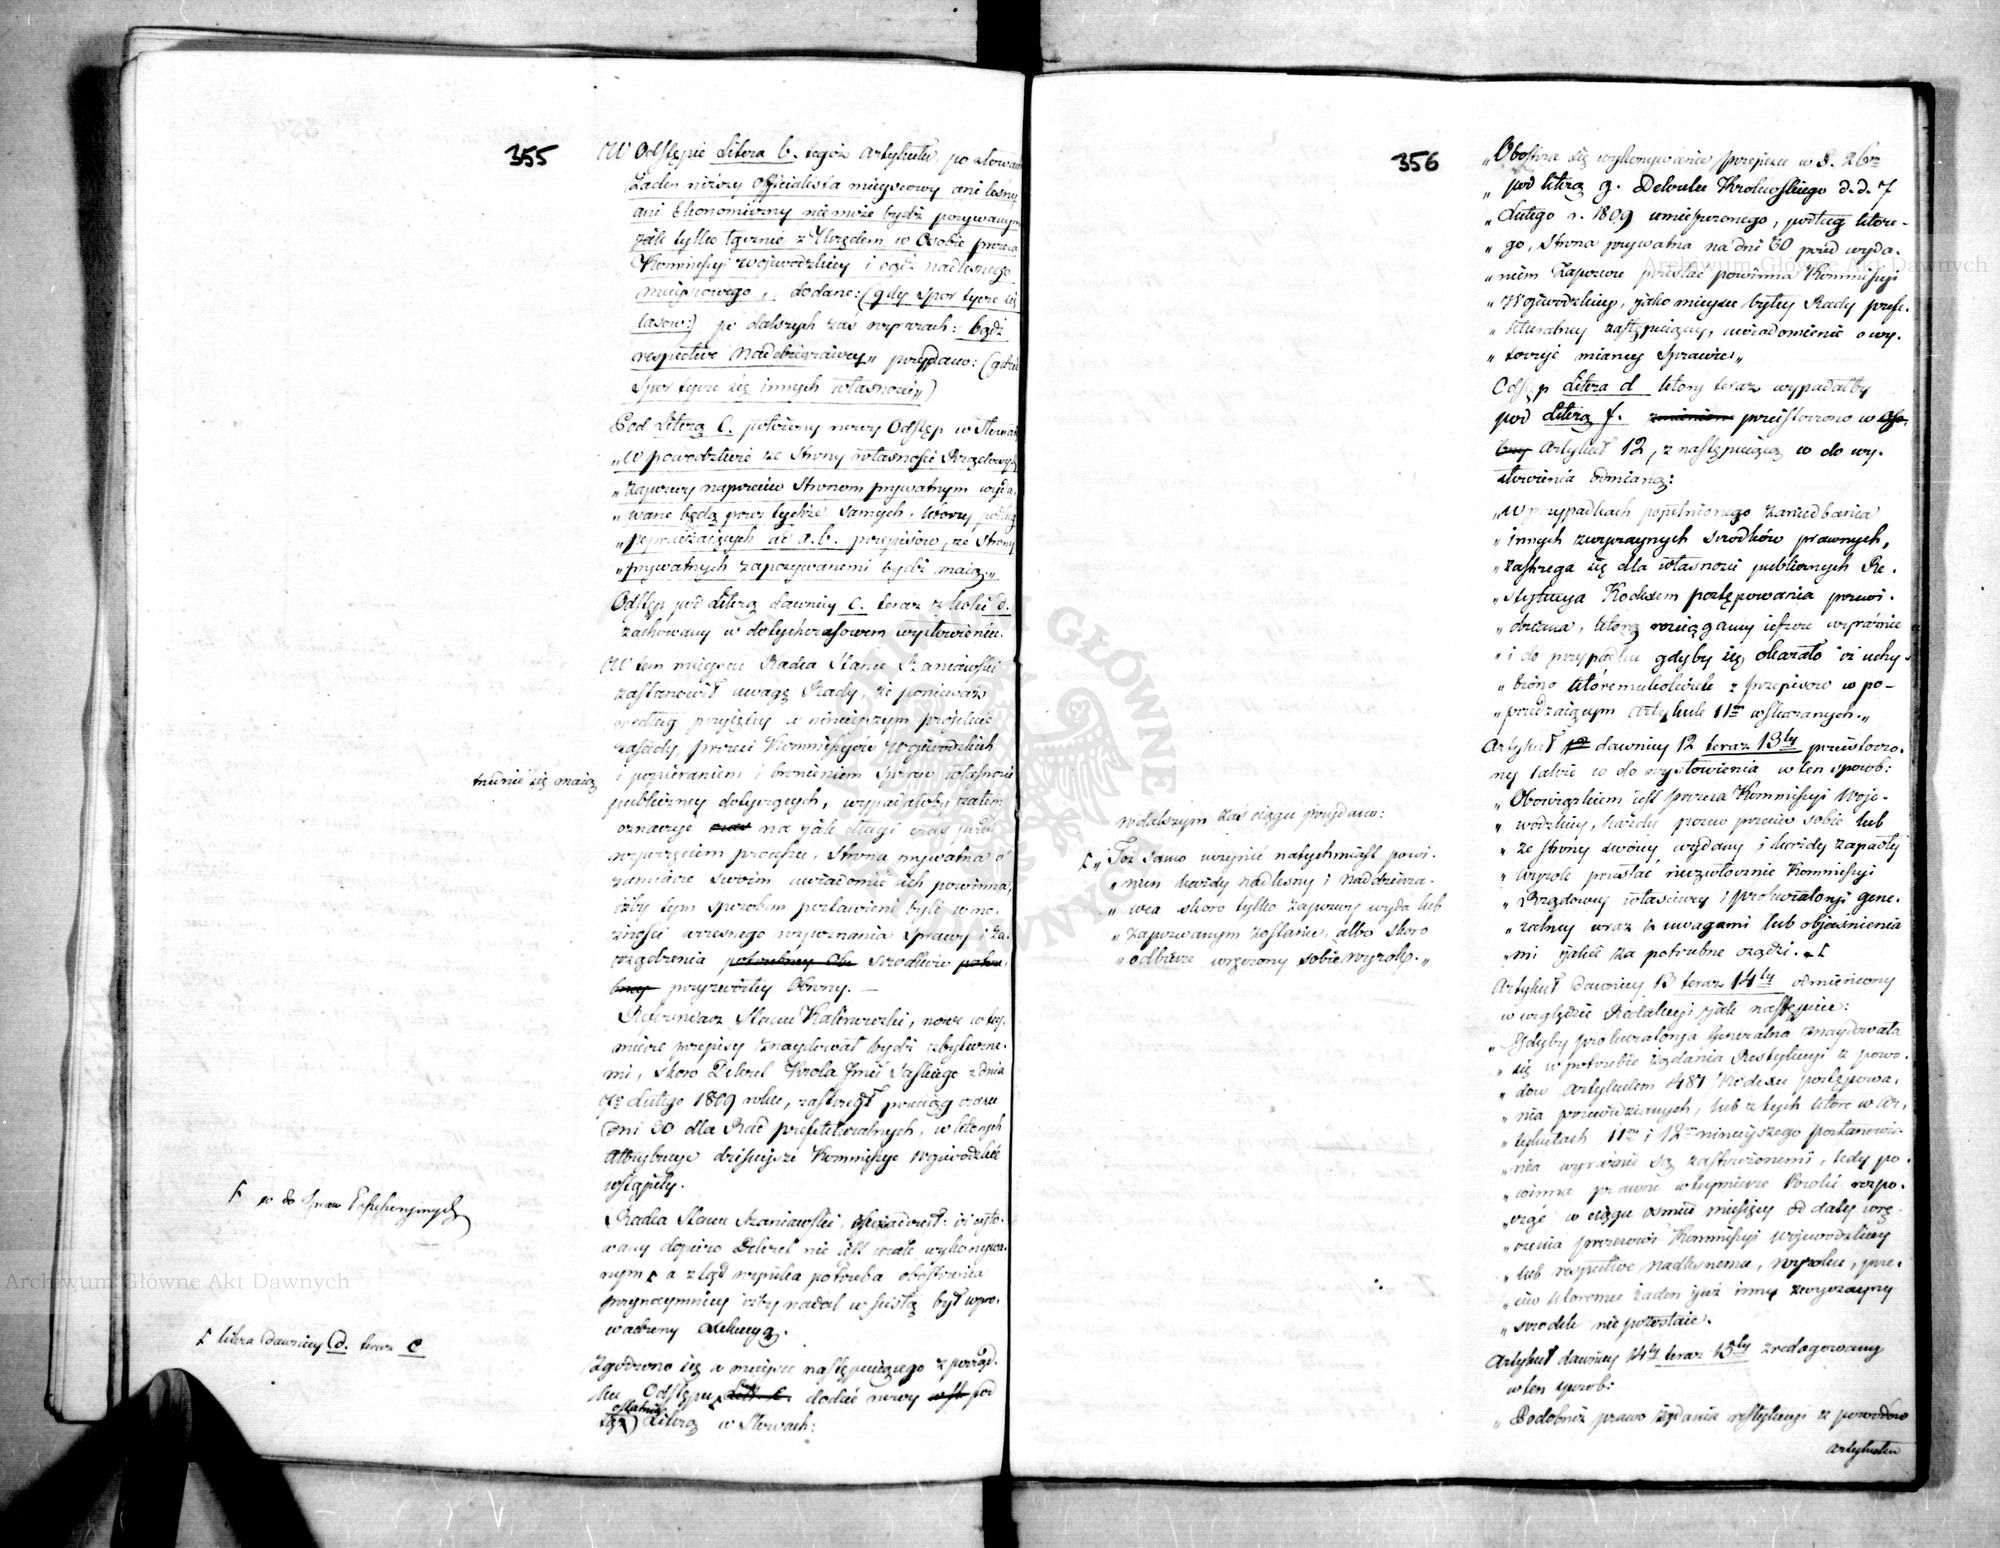 355
W Odstępie Litera b. tegoż Artykułu, po słowach
Żaden niższy Officialista mieyscowy ani leśny
ani Ekonomiczny nie może bydź pozywanym
jak tylko łącznie z Urzędem w Osobie prezesa
Kommissyi Wojewódzkiey i bądź nadleśnego
mieyscowego, dodano: (gdy spor tycze się
lasow:) po dalszych zas wyrazach: bądź
respective Naddzierżawcy" przydano: (gdzie
spor tycze się innych własności")
Pod Literą C. położony nowy Odstęp w słowach
"W powództwie ze strony własności Rządowych
"zapozwy naprzeciw stronom prywatnym wyda-
"wane będą przez tychże samych, którzy podług
"poprzedzaiących ad a. b. przepisow, ze strony
"prywatnych zapozywanemi bydź maią."
Odstęp pod Literą dawniey c. teraz z kolei d.
zachowany w dotychczasowem wysłowieniu.
W tem mieyscu Radca Stanu Szaniawski
zastanowił uwagę Rady, że ponieważ
według przyiętey w ninieyszym projekcie
zasady, prezesi Kommissyiow Wojewódzkich
trudnić się maią
i popieraniem i bronieniem spraw własności
publiczney dotyczących, wypadałoby zatem
oznaczyć na jak długi czas przed
rozpoczęciem processu, strona prywatna o
zamiarze swoim uwiadomić ich powinna,
iżby tym sposobem postawieni byli w mo-
żności wczesnego rozpoznania sprawy i za-
rządzenia srodkow
przyzwoitey Obrony. —
Referendarz Stanu Kalinowski, nowe w tey
mierze przepisy znaydował bydź zbyteczne-
mi, skoro Dekret Krola Jmci Saskiego z dnia
7go Lutego 1809 roku, zastrzegł przeciąg czasu
dni 30 dla Rad prefekturalnych, w których
Attrybucye dzisieysze Kommissye Wojewódzkie
wstąpiły.
Radca Stanu Szaniawski, iż cyto-
wany dopiero Dekret nie iest wcale wykonywa-
nym a ztąd wynika potrzeba obostrzenia
przynaymniey iżby nadal w scisłą był wpro-
wadzony exekucyą.
Zgodzono się a mieysce następuiącego z porząd-
ku Odstępu dodać nowy pod
ostatnią
tąż Literą w słowach:
litera dawniey d. teraz e
356
"Obostrza się wykonywanie przepisu w
"pod literą g. Dekretu Krolewskiego d. d. 7
"Lutego r. 1809 umieszczonego, podług które-
"go, strona prywatna na dni 30 przed wyda-
"niem zapozwu przesłać powinna Kommissyi
"Wojewódzkiey, jako mieysce byłey Rady prefe-
"kturalney zastępuiącey, uwiadomienie o wy-
"toczyć mianey sprawie."
Odstęp Litera d który teraz wypadałby
pod Literą f. przeistoczono w
Artykuł 12, z następuiącą w do wy-
słowienia odmianą:
"W przypadkach popełnionego zaniedbania
"innych zwyczaynych srodków prawnych,
"zastrzega się dla własności publicznych Re-
"stytucya Kodexem postępowania przewi-
"dziana, którą rozciągamy ieszcze wyraźnie
"i do przypadku gdyby się okazało iż uchy-
"biono któremukolwiek z przepisow w po-
"przedzaiącym Artykule 11m wskazanych."
Artykuł dawniey 12 teraz 13ty przeistoczo-
ny także w do wysłowienia w ten sposob:
"Obowiązkiem iest prezesa Kommissyi Woje-
"wodzkiey, każdy pozew przeciw sobie lub
"ze strony swoiey wydany i każdy zapadły
"wyrok przesłać niezwłocznie Kommissyi
"Rządowey właściwey i prokuratoryi gene-
"ralney wraz z uwagami lub objaśnienia-
"mi jakie za potrzebne osądzi.
w dalszym zaś ciągu przydano:
"Toż samo uczynić natychmiast powi-
"nien każdy nadleśny i naddzierża-
"wca skoro tylko zapozwy wyda lub
"zapozwanym zostanie, albo skoro
"odbierze wręczony sobie wyrok."
Artykuł dawniey 13 teraz 14ty odmieniony
w względzie Redakcyi jak następuie:
"Gdyby prokuratorya Generalna znaydowała
"się w potrzebie żądania Restytucyi z powo-
"dow Artykułem 481 Kodexu postępowa-
"nia przewidzianych, lub z tych które w Ar-
"tykułach 11m i 12m ninieyszego postanowie-
"nia wyraźnie są zastrzeżonemi, tedy po-
"winna prawne w teymierze kroki rozpo-
"cząć w ciągu osmiu miesięcy od daty wrę-
"czenia prezesowi Kommissyi Wojewodzkiey
"lub respective nadlesnemu, wyroku, prze-
"ciw któremu żaden już inny zwyczayny
"srodek nie pozostaie.
Artykuł dawniey 14ty teraz 15ty zredagowany
w ten sposob:
"Podobnież prawo żądania restytucyi z powodow
Artykułem
Archiwum Główne Akt Dawnych
Archiwum Główne Akt Dawnych
ARCHIWUM GŁÓWNE AKT DAWNYCH